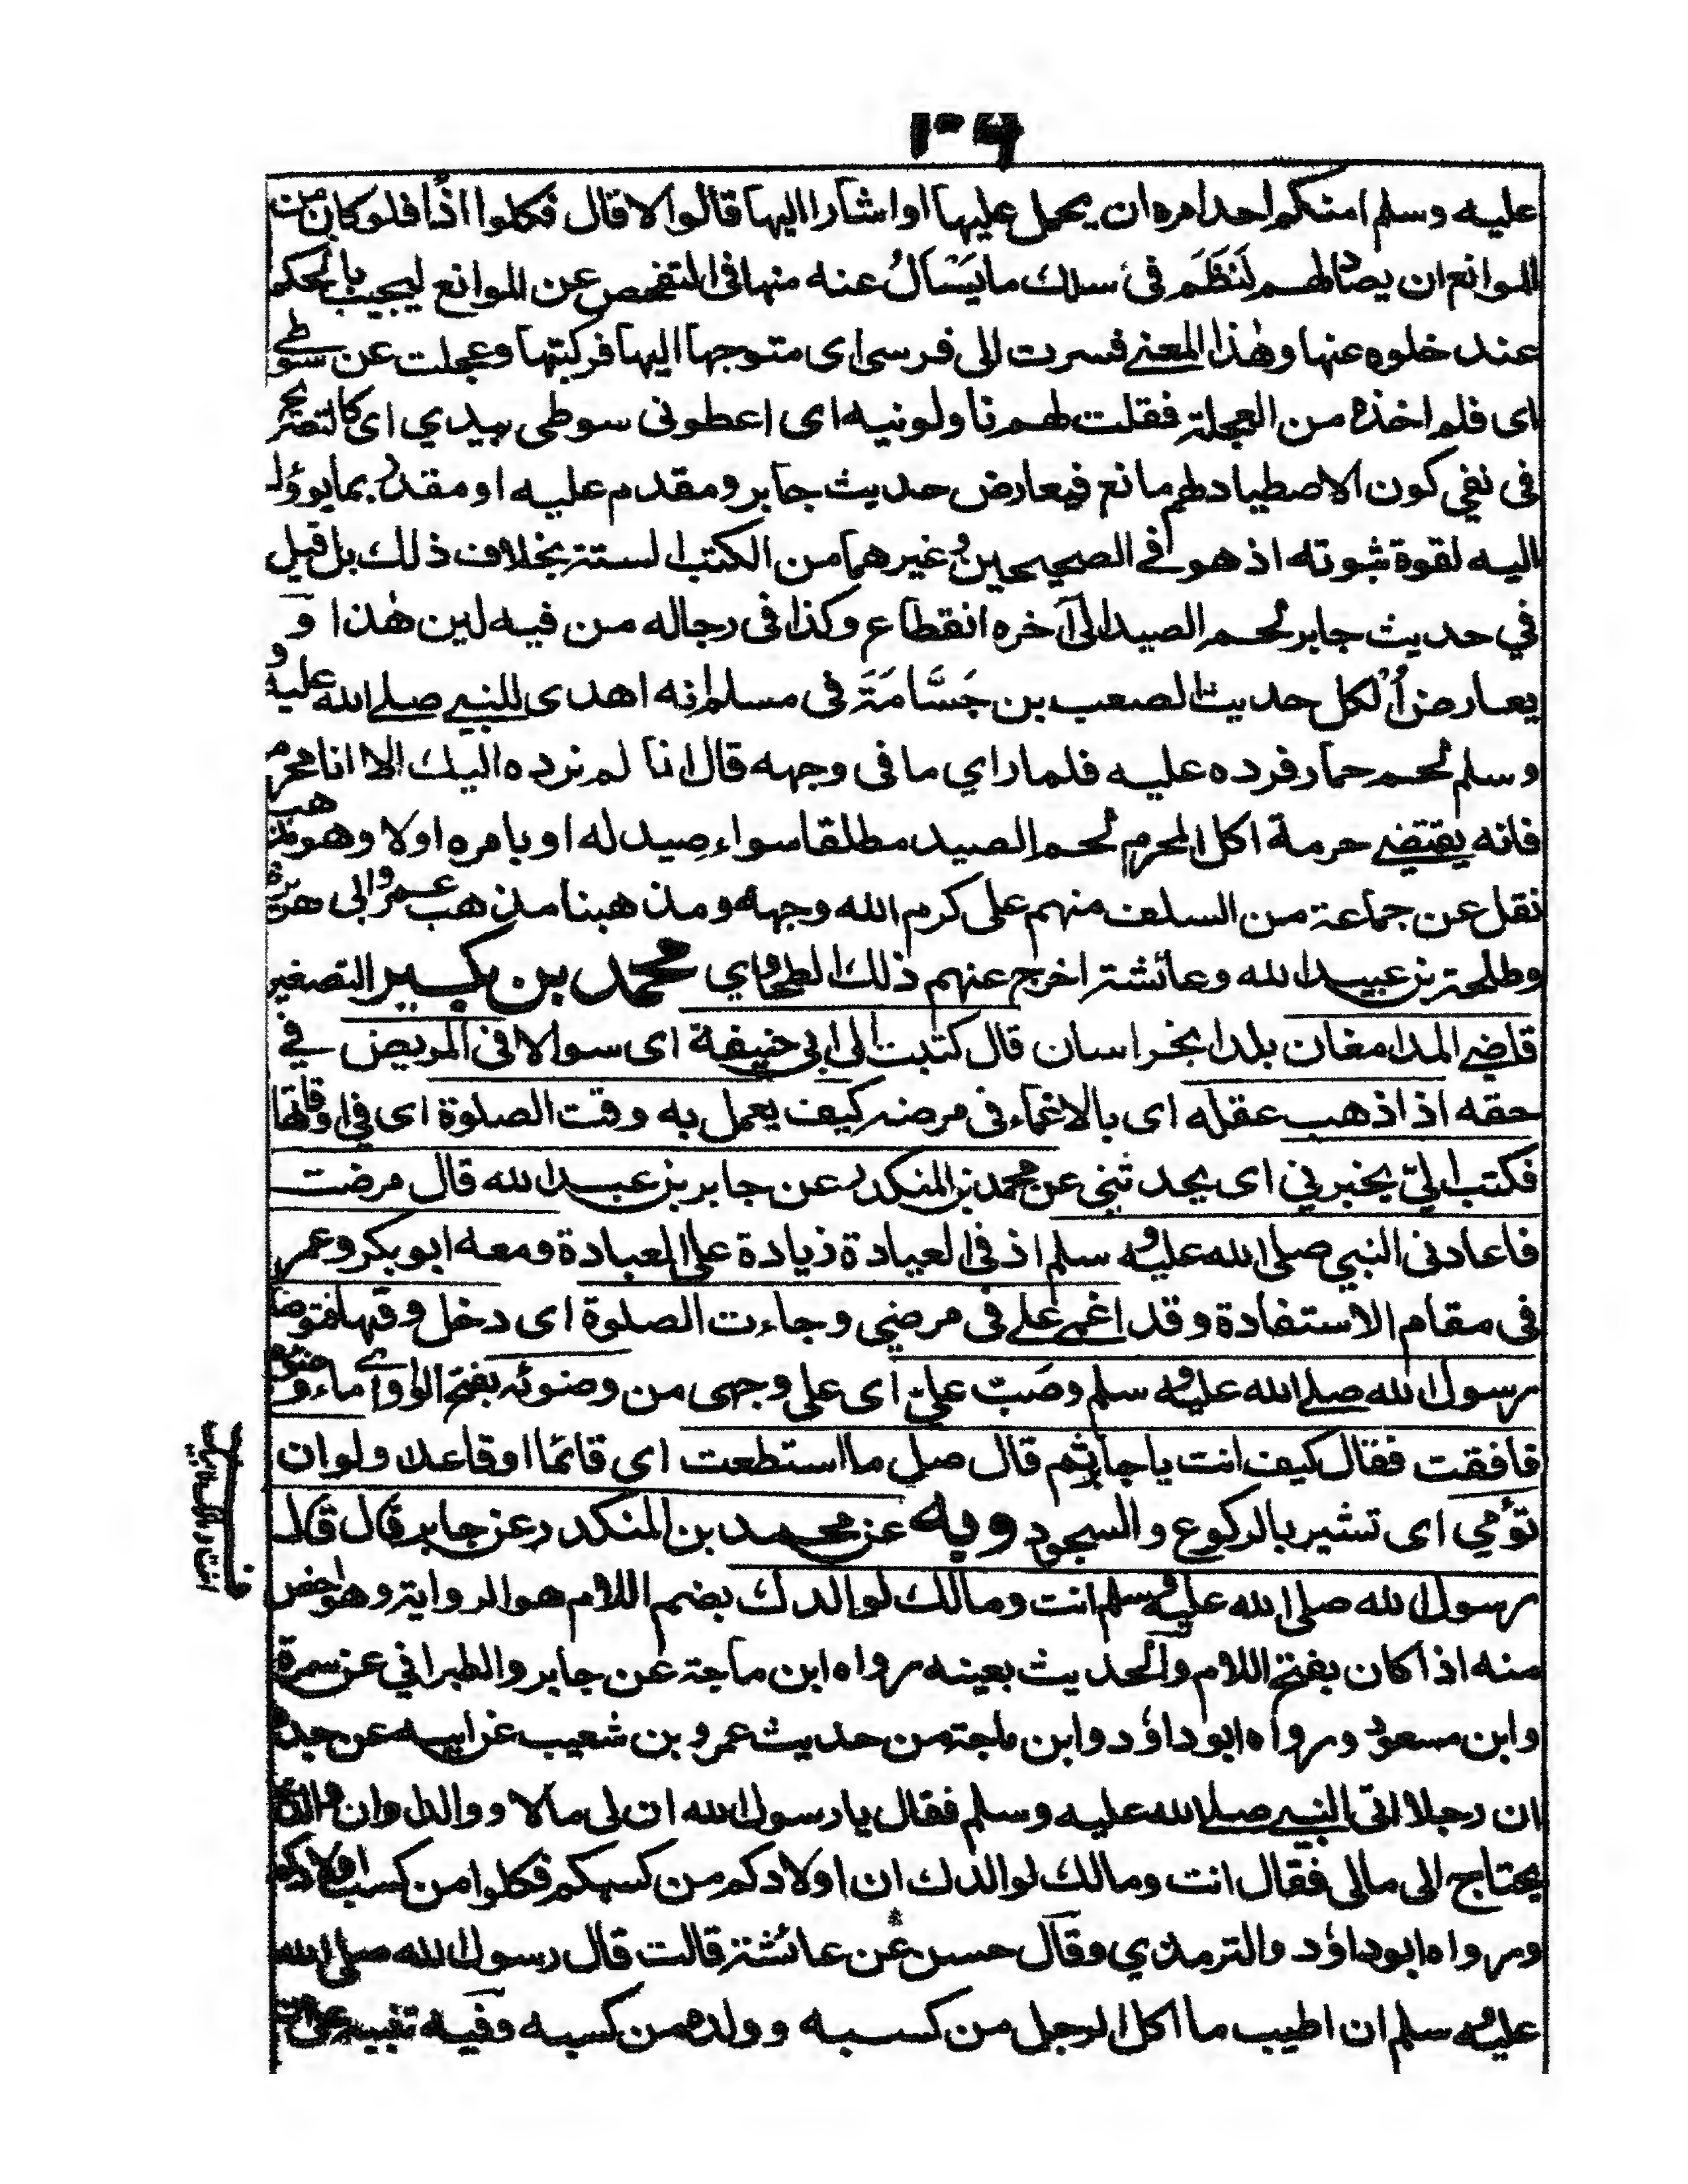 ١٠٦
عليه وسلم امنكم احد امره ان يحمل عليها او اشار اليها قالوا لا قال فكلوا اذًا فلو كان من
الموانع ان يصاد لهم لَنَظَمَ في سلك ما يَسْالُ عنه منها في التفحص عن الموانع ليجيب بالحكم
عند خلوه عنها وهٰذا المعنى فسرت الى فرسى اى متوجها اليها فركبتها وعجلت عن سوطى
اى فلم اخذه من العجلة فقلت لهم ناولونيه اى اعطونى سوطى بيدي اى كالتصريح
فى نفي كون الاصطياد لهم مانع فيعارض حديث جابر ومقدم عليه او مقدر بما يوؤل
اليه لقوة ثبوته اذ هو في الصحيحين وغيرهما من الكتب الستة بخلاف ذلك بل قيل
في حديث جابر لحم الصيد الى آخره انقطاع وكذا فى رجاله من فيه لين هٰذا و
يعارض الكل حديث الصعب بن جَسَّامَةَ فى مسلم انه اهدى للنبي صلى الله عليه و
وسلم لحم حمار فرده عليه فلما راي ما فى وجهه قال انا لم نرده اليك الا انا محرم
فانه يقتضي حرمة اكل المحرم لحم الصيد مطلقا سواء صِيد له او بامره اولا وهو مذهب
نقل عن جماعة من السلف منهم على كرم الله وجهه ومذهبنا مذهب عمر وابى هريرة
وطلحة بن عبيد الله وعائشة اخرج عنهم ذلك الطحاوي محمد بن بكير التصغير
قاضى الدامغان بلد بخراسان قال كتبت الى ابى حنيفة اى سوالا فى المريض في
حقه اذا ذهب عقله اى بالاغماء فى مرضه كيف يعمل به وقت الصلوة اى في اوقاتها
فكتب اليّ يخبرني اى يحدثنى عن محمد بن المنكدر عن جابر بن عبد الله قال مرضت
فاعادنى النبي صلى الله عليه وسلم اذ فى العيادة زيادة على العبادة ومعه ابو بكر وعمر
فى مقام الاستفادة وقد اغمى على فى مرضي وجاءت الصلوة اى دخل وقتها فتوضا
رسول الله صلى الله عليه وسلم وصَبّ على اى على وجهى من وضوئه بفتح الواو اى ماء
فافقت فقال كيف انت يا جابر ثم قال صل ما استطعت اى قائما او قاعدا ولو ان
تؤمي اى تشير بالركوع والسجود وبه عن محمد بن المنكدر عن جابر قال قال
رسول الله صلى الله عليه وسلم انت ومالك لوالدك بضم اللام هو الرواية وهو اخص
منه اذا كان بفتح اللام والحديث بعينه رواه ابن ماجة عن جابر والطبراني عن سمرة
وابن مسعود ورواه ابو داؤد وابن ماجة من حديث عمرو بن شعيب عن ابيه عن جده
ان رجلا اتى النبي صلى الله عليه وسلم فقال يا رسول الله ان لى مالا ووالدا وان والدى
يحتاج الى مالى فقال انت ومالك لوالدك ان اولادكم من كسبكم فكلوا من كسب اولادكم
ورواه ابو داؤد والترمذي وقال حسن عن عائشة قالت قال رسول الله صلى الله
عليه وسلم ان اطيب ما اكل الرجل من كسبه وولده من كسبه وفيه تنبيه على ان